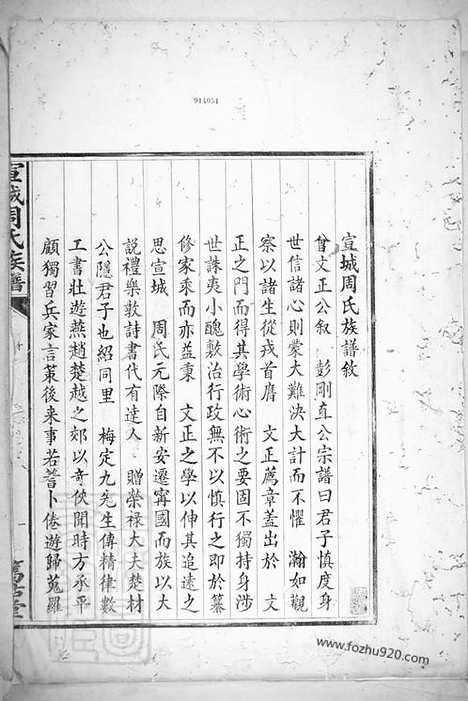 914051
宣城周氏族譜敘
曾文正公叙 彭剛直公宗譜曰君子慎度身
世信諸心則蒙大難決大計而不懼 瀚如觀
察以諸生從戎首膺 文正薦章蓋出於 文
正之門而得其學術心術之要固不獨持身涉
世誅夷小醜敷治行政無不以慎行之即於纂
修家乘而亦益秉 文正之學以伸其追遠之
思宣城 周氏元際自新安遷甯國而族以大
說禮樂敦詩書代有達人 贈榮祿大夫楚材
公隱君子也紹同里 梅定九先生傳精律數
工書壯遊燕趙楚越之郊以奇俠聞時方承平
顧獨習兵家言策後來事若蓍卜倦遊歸蒐羅
宣城周氏族譜
www.fozhu920.com